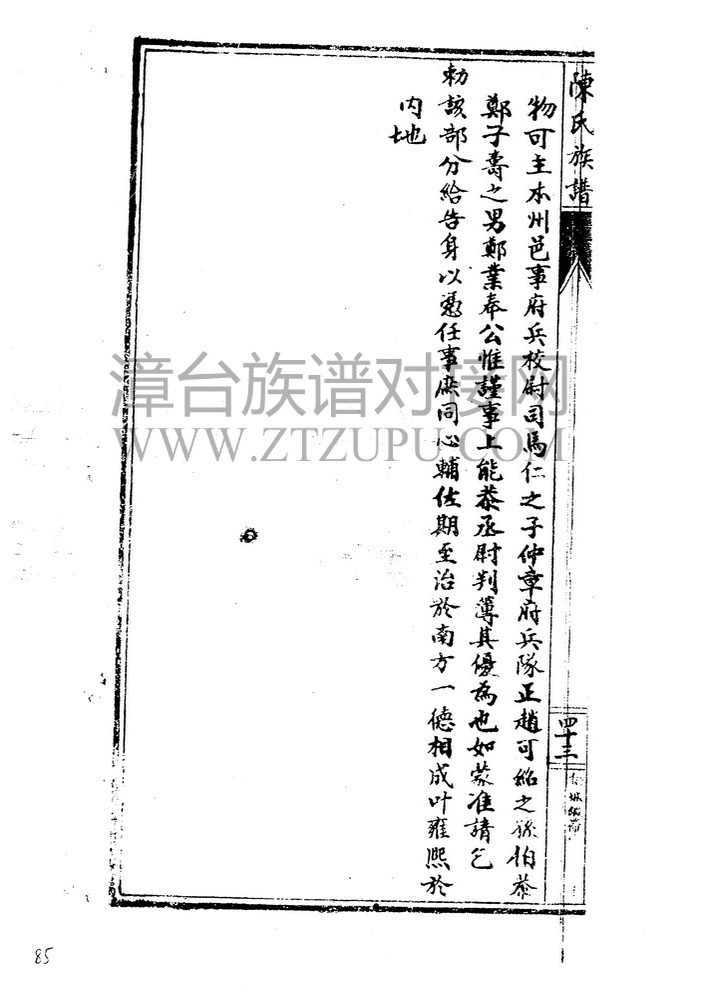 陳氏族譜
物可主本州邑事府兵校尉司馬仁之子仲章府兵隊正趙可紹之孫伯恭
鄭子壽之男鄭業奉公惟謹事上能恭丞尉判簿其優為也如蒙准請乞
勅該部分給告身以憑任事庶同心輔佐期至治於南方一德相成叶雍熙於
內地
四十三
漳台族谱对接网
WWW.ZTZUPU.COM
85